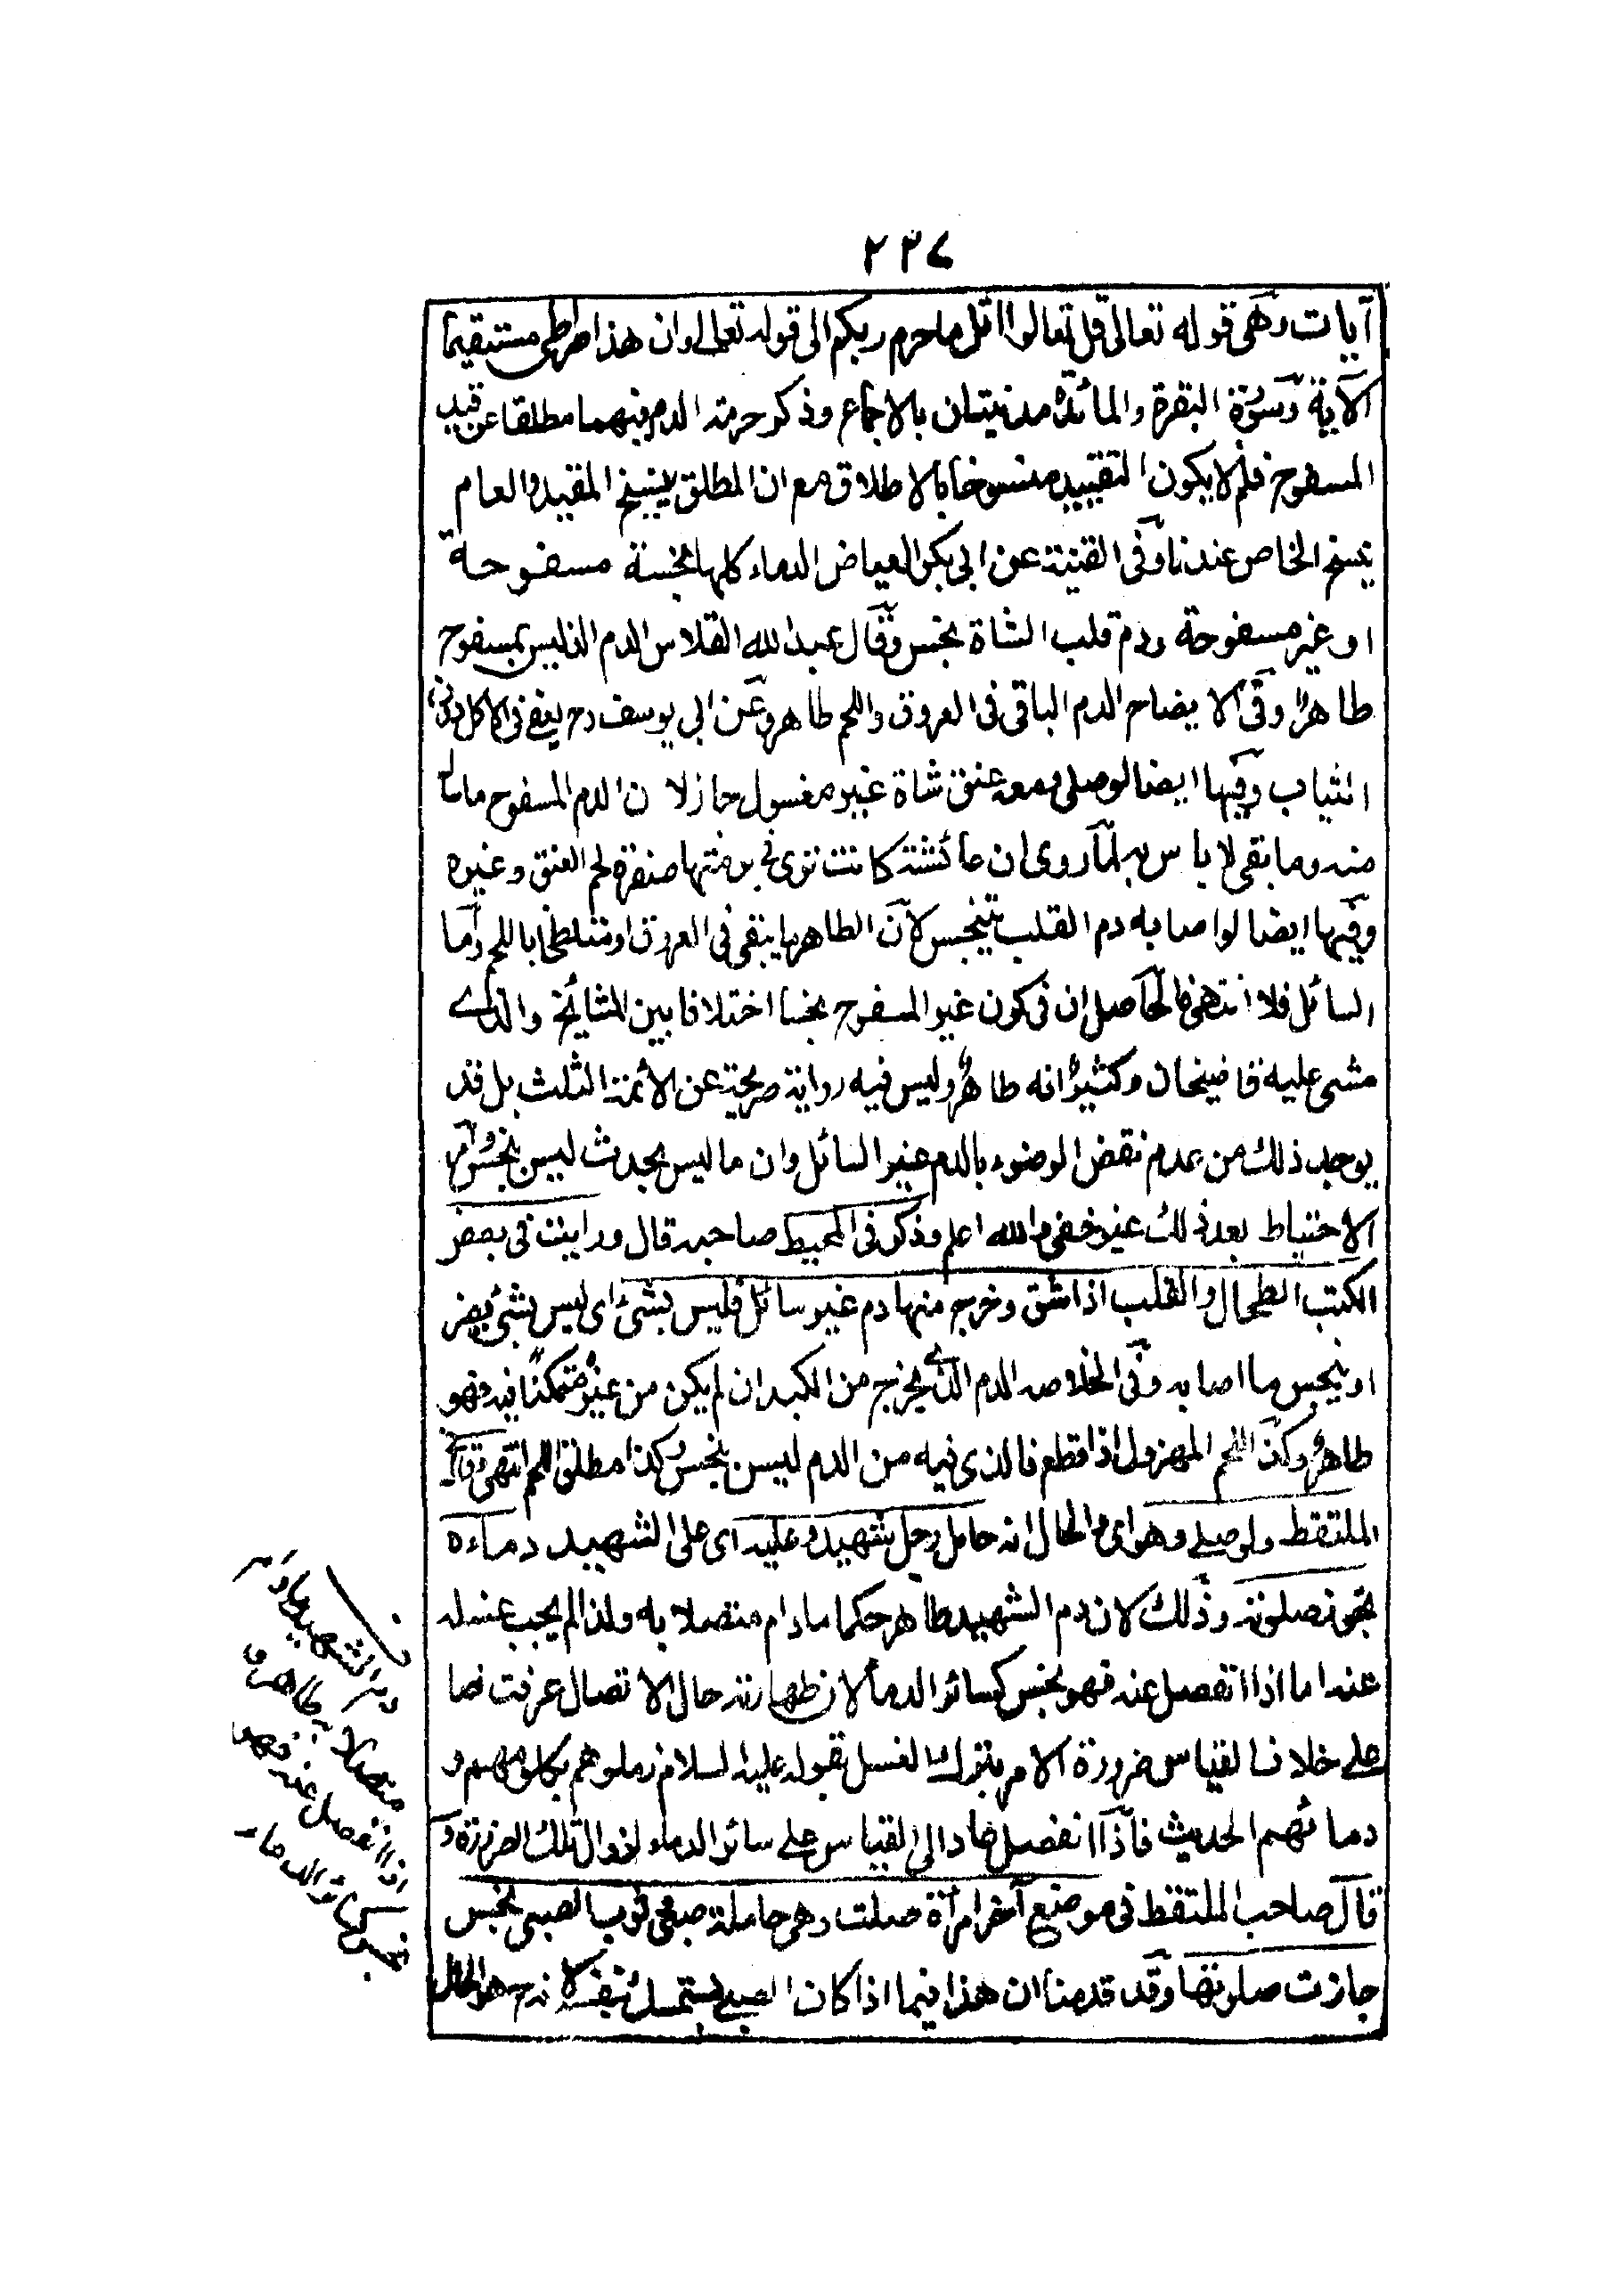 ٢٣٧
آيات وهى قوله تعالى قل تعالوا اتل ما حرم ربكم الى قوله تعالى وان هذا صراطى مستقيما
الآية وسورة البقرة والمائدة مدنيتان بالاجماع وذكر حرمة الدم فيهما مطلقا عن قيد
المسفوح فلم لا يكون التقييد منسوخا بالاطلاق مع ان المطلق ينسخ المقيد والعام
ينسخ الخاص عندنا وفى القنية عن ابى بكر العياض الدماء كلها نجسة مسفوحة
او غير مسفوحة ودم قلب الشاة نجس وقال عبد الله القلاس الدم الذى ليس بمسفوح
طاهر وفى الايضاح الدم الباقى فى العروق واللحم طاهر وعن ابى يوسف رح يعفى فى الاكل دون
الثياب وفيها ايضا لو صلى ومعه عنق شاة غير مغسول جاز لان الدم المسفوح ما سال
منه وما بقى لا باس به لما روى ان عائشة كانت ترى فى برمتها صفرة لحم العنق وغيره
وفيها ايضا لو اصابه دم القلب يتنجس لان الطاهر ما يبقى فى العروق او متلطخا باللحم واما
السائل فلا انتهى فالحاصل ان فى كون غير المسفوح نجسا اختلافا بين المشائخ والذى
مشى عليه قاضيخان وكثير انه طاهر وليس فيه رواية صريحة عن الائمة الثلث بل قد
يوجد ذلك من عدم نقض الوضوء بالدم غير السائل وان ما ليس بحدث ليس بنجس وامر
الاحتياط بعد ذلك غير خفى والله اعلم وذكر فى المحيط صاحبه قال ورايت فى بعض
الكتب الطحال والقلب اذا شق وخرج منها دم غير سائل فليس بشئ اى ليس بشئ يضر
او ينجس ما اصابه وفى الخلاصه الدم الذى يخرج من الكبد ان لم يكن من غيره متمكنا فيه فهو
طاهر وكذا اللحم المهزول اذا قطع فالذى فيه من الدم ليس بنجس وكذا مطلق اللحم انتهى وقال فى
الملتقط ولو صلى وهو اى والحال انه حامل رجل شهيد وعليه اى على الشهيد دماءه
تجوز صلوته وذلك لان دم الشهيد طاهر حكما ما دام متصلا به ولذا لم يجب غسله
عنه اما اذا انفصل عنه فهو نجس كسائر الدماء لان طهارته حال الاتصال عرفت نصا
على خلاف القياس ضرورة الامر بترك الغسل بقوله عليه السلام زملوهم بكلومهم و
دمائهم الحديث فاذا انفصل عاد الى القياس على سائر الدماء لزوال تلك الضرورة و
قال صاحب الملتقط فى موضع آخر امرأة صلت وهى حاملة صبى ثوب الصبى نجس
جازت صلوتها وقد قدمنا ان هذا فيما اذا كان الصبى يستمسك بنفسه
دم الشهيد ما دام
متصلا به طاهر و
اذا انفصل عنه فهو
نجس كسائر الدماء